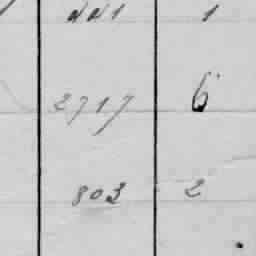 221 1
2717 6
803 2